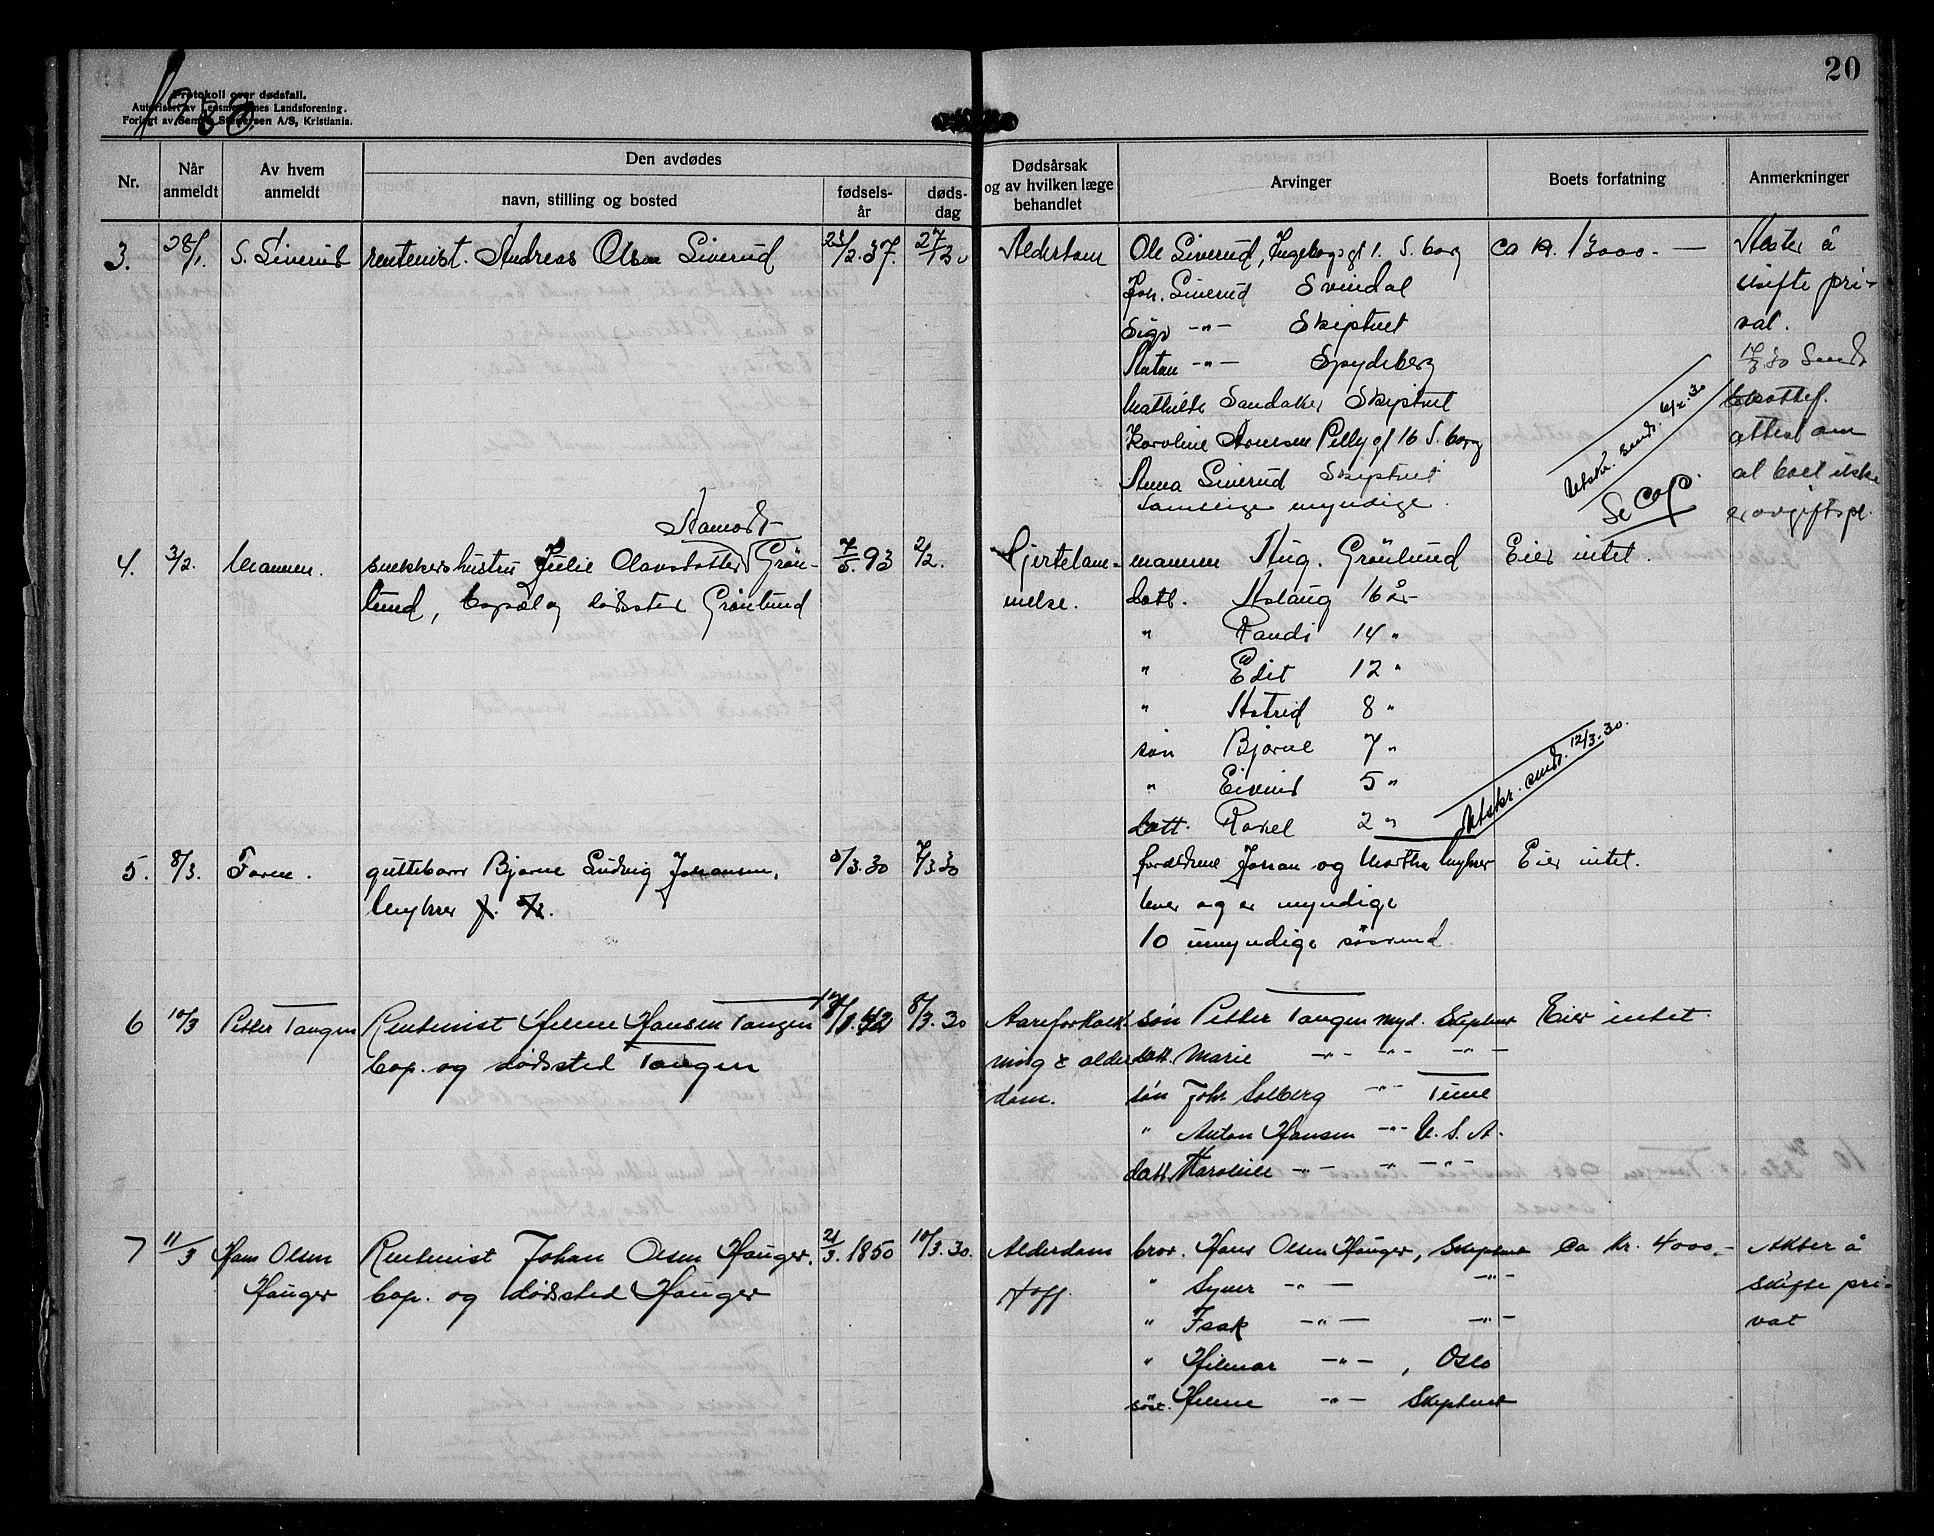 20
1930.
Protokoll over dødsfall.
Autorisert av Lensmennenes Landsforening.
Forlagt av Sem & Stenersen A/S, Kristiania.
Nr. Når anmeldt Av hvem anmeldt Den avdødes navn, stilling og bosted fødsels-år døds-dag Dødsårsak og av hvilken læge behandlet Arvinger Boets forfatning Anmerkninger
3. 28/1. S. Siverud rentenist. Andreas Olsen Siverud 23/2.37. Alderdom Ole Siverud, Ingeborgsgt 1. S.borg ca kr. 13000.- Akter å
Joh. Siverud Svindal skifte pri-
Sigv -"- Skiptvet vat.
Anton -"- Spydeberg Sendt
Mathilde Sandaker Skiptvet
Karoline Arnesen Pellygt 16 S.borg attest om
Anna Siverud Skiptvet at boet ikke
samtlige myndige. er avgiftspl.
Utskr. sendt. 6/2.30
Se cop.
Hamodt
4. 3/2. Mannen. snekkerhustru Julie Olavsdatter Grön- 7/5.93 2/2. Hjertelam- mannen Aug. Grönlund Eier intet.
lund, bopæl og dödssted Grönlund melse. datt. Aslaug 16 år
" Randi 14 "
" Edit 12 "
" Astrid 8 "
sön Bjarne 7 "
" Eivind 5 "
datt. Rakel 2 "
Utskr. sendt. 12/3.30.
5. 8/3. Faren. guttebarn Bjarne Ludvig Johansen, 5/3.30 7/3.30 foreldrene Johan og Martha Myhrer Eier intet.
Myhrer lever og er myndige
10 umyndige söskend.
6 10/3 Petter Tangen Rentenist Helene Hansen Tangen 8/3.30 Aareforkalk- søn Petter Tangen myd. Skiptvet Eier intet.
bop. og dødssted Tangen ning & alder datt. Marie -"- -"- -"-
dom. søn Johs Solberg -"- Tune
" Anton Hansen -"- U.S.A.
datt. Karoline -"- " -"-
7 11/3 Hans Olsen Rentenist Johan Olsen Hauger. 21/3.1850 10/3.30. Alderdom bror. Hans Olsen Hauger, Skiptvet Ca kr. 4000,- Akter å
Hauger bop. og dødssted Hauger Hoff. " Syver -"- -"- skifte pri-
" Isak -"- -"- vat
" Hilmar -"-, Oslo
søst. Helene -"- Skiptvet